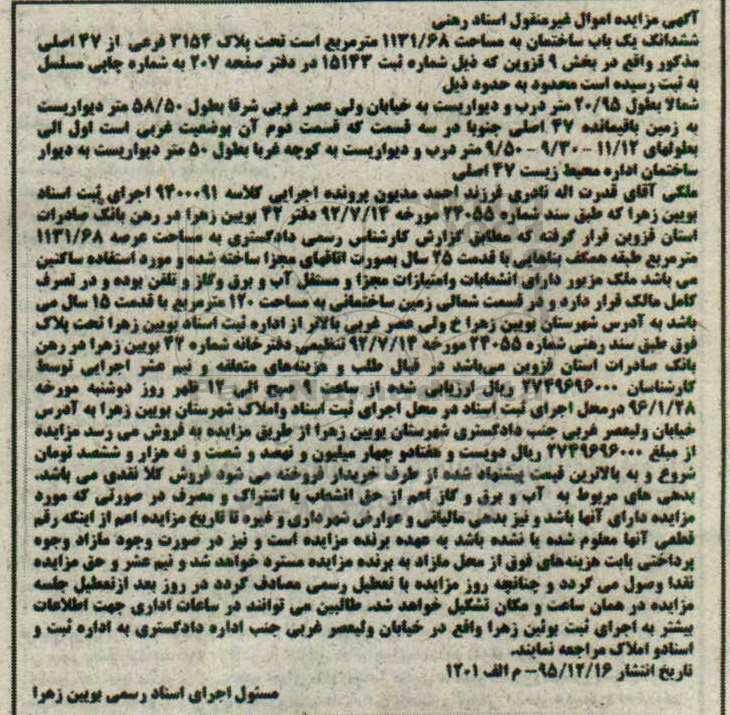 آگهی مزایده اموال غیرمنقول اسناد رهنی
ششدانگ یک باب ساختمان به مساحت ۱۱۳۱/۶۸ مترمربع است تحت پلاک ۳۱۵۴ فرعی از ۴۷ اصلی
مذکور واقع در بخش ۹ قزوین که ذیل شماره ثبت ۱۵۱۴۳ در دفتر صفحه ۲۰۷ به شماره چاپی مسلسل
به ثبت رسیده است محدود به حدود ذیل
شمالا بطول ۲۰/۹۵ متر درب و دیواریست به خیابان ولی عصر غربی شرقا بطول ۵۸/۵۰ متر دیواریست
به زمین باقیمانده ۴۷ اصلی جنوبا در سه قسمت که قسمت دوم آن بوضعیت غربی است اول الی
بطولهای ۱۱/۱۲ - ۹/۳۰ - ۹/۵۰ متر درب و دیواریست به کوچه غربا بطول ۵۰ متر دیواریست به دیوار
ساختمان اداره محیط زیست ۴۷ اصلی
ملکی آقای قدرت اله نادری فرزند احمد مدیون پرونده اجرایی کلاسه ۹۴۰۰۰۹۱ اجرای ثبت اسناد
بویین زهرا که طبق سند شماره ۲۴۰۵۵ مورخه ۹۲/۷/۱۴ دفتر ۴۲ بویین زهرا در رهن بانک صادرات
استان قزوین قرار گرفته که مطابق گزارش کارشناس رسمی دادگستری به مساحت عرصه ۱۱۳۱/۶۸
مترمربع طبقه همکف بناهایی با قدمت ۲۵ سال بصورت اتاقهای مجزا ساخته شده و مورد استفاده ساکنین
می باشد ملک مزبور دارای انشعابات وامتیازات مجزا و مستقل آب و برق وگاز و تلفن بوده و در تصرف
کامل مالک قرار دارد و در قسمت شمالی زمین ساختمانی به مساحت ۱۲۰ مترمربع با قدمت ۱۵ سال می
باشد به آدرس شهرستان بویین زهرا خ ولی عصر غربی بالاتر از اداره ثبت اسناد بویین زهرا تحت پلاک
فوق طبق سند رهنی شماره ۲۴۰۵۵ مورخه ۹۲/۷/۱۴ تنظیمی دفترخانه شماره ۴۲ بویین زهرا در رهن
بانک صادرات استان قزوین می‌باشد در قبال طلب و هزینه‌های متعلقه و نیم عشر اجرایی توسط
کارشناسان ۲۷۴۹۶۹۶۰۰۰ ریال ارزیابی شده از ساعت ۹ صبح الی ۱۲ ظهر روز دوشنبه مورخه
۹۶/۱/۲۸ درمحل اجرای ثبت اسناد در محل اجرای ثبت اسناد واملاک شهرستان بویین زهرا به آدرس
خیابان ولیعصر غربی جنب دادگستری شهرستان بویین زهرا از طریق مزایده به فروش می رسد مزایده
از مبلغ ۲۷۴۹۶۹۶۰۰۰ ریال دویست و هفتادو چهار میلیون و نهصد و شصت و نه هزار و ششصد تومان
شروع و به بالاترین قیمت پیشنهاد شده از طرف خریدار فروخته می شود فروش کلا نقدی می باشد.
بدهی های مربوط به آب و برق و گاز اعم از حق انشعاب یا اشتراک و مصرف در صورتی که مورد
مزایده دارای آنها باشد و نیز بدهی مالیاتی و عوارض شهرداری و غیره تا تاریخ مزایده اعم از اینکه رقم
قطعی آنها معلوم شده یا نشده باشد به عهده برنده مزایده است و نیز در صورت وجود مازاد وجوه
پرداختی بابت هزینه‌های فوق از محل مازاد به برنده مزایده مسترد خواهد شد و نیم عشر و حق مزایده
نقدا وصول می گردد و چنانچه روز مزایده با تعطیل رسمی مصادف گردد در روز بعد ازتعطیل جلسه
مزایده در همان ساعت و مکان تشکیل خواهد شد. طالبین می توانند در ساعات اداری جهت اطلاعات
بیشتر به اجرای ثبت بوئین زهرا واقع در خیابان ولیعصر غربی جنب اداره دادگستری به اداره ثبت و
اسنادو املاک مراجعه نمایند.
تاریخ انتشار ۹۵/۱۲/۱۶- م الف ۱۲۰۱
مسئول اجرای اسناد رسمی بویین زهرا